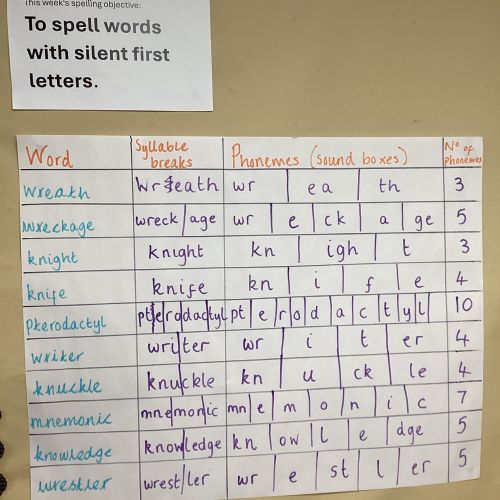 This week's spelling objective:
To spell words
with silent first
letters.
Word Syllable breaks Phonemes (sound boxes) No of Phonemes
wreath wreath wr | ea | th 3
wreckage wreck/age wr | e | ck | a | ge 5
knight knight kn | igh | t 3
knife knife kn | i | f | e 4
Pterodactyl pt|e|ro|dac|tyl pt | e | r | o | d | a | c | t | y | l 10
writer wri|ter wr | i | t | er 4
knuckle knu|ckle kn | u | ck | le 4
mnemonic mne|mon|ic mn | e | m | o | n | i | c 7
knowledge know|ledge kn | ow | l | e | dge 5
wrestler wrest/ler wr | e | st | l | er 5